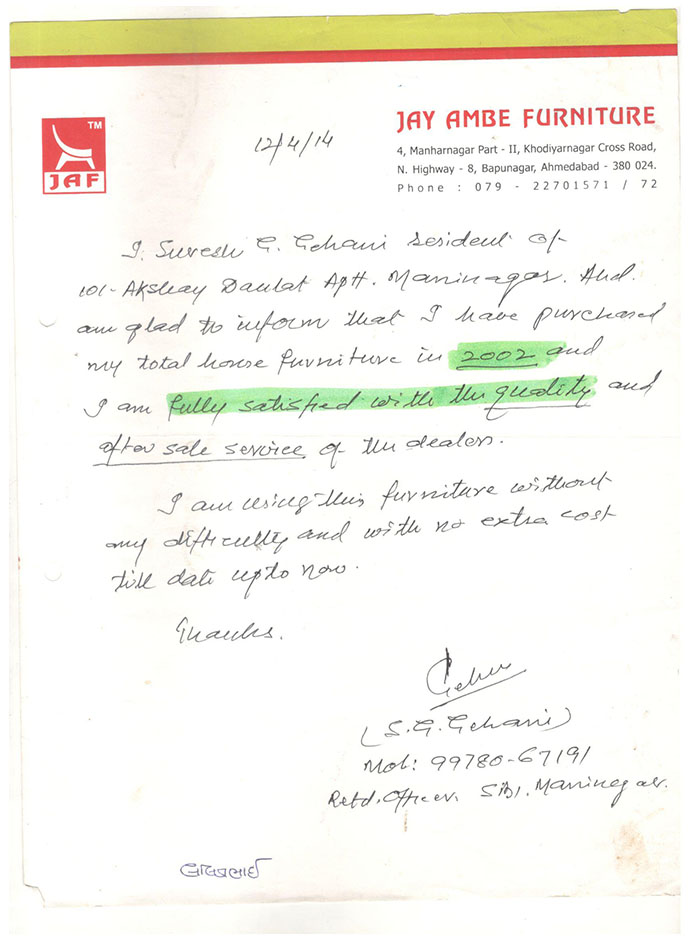 TM
JAF
JAY AMBE FURNITURE
4, Manharnagar Part - II, Khodiyarnagar Cross Road,
N. Highway - 8, Bapunagar, Ahmedabad - 380 024.
Phone : 079 - 22701571 / 72
12/4/14
I. Suresh G. Gehani resident of
101- Akshay Daulat Aptt. Maninagar. And.
am glad to inform that I have purchased
my total house furniture in 2002 and
I am fully satisfied with the quality and
after sale service of the dealers.
I am using this furniture without
any difficulty and with no extra cost
till date upto now.
Thanks.
(S. G. Gehani)
Mob: 99780-67191
Retd. Officer, SBI, Maninagar.